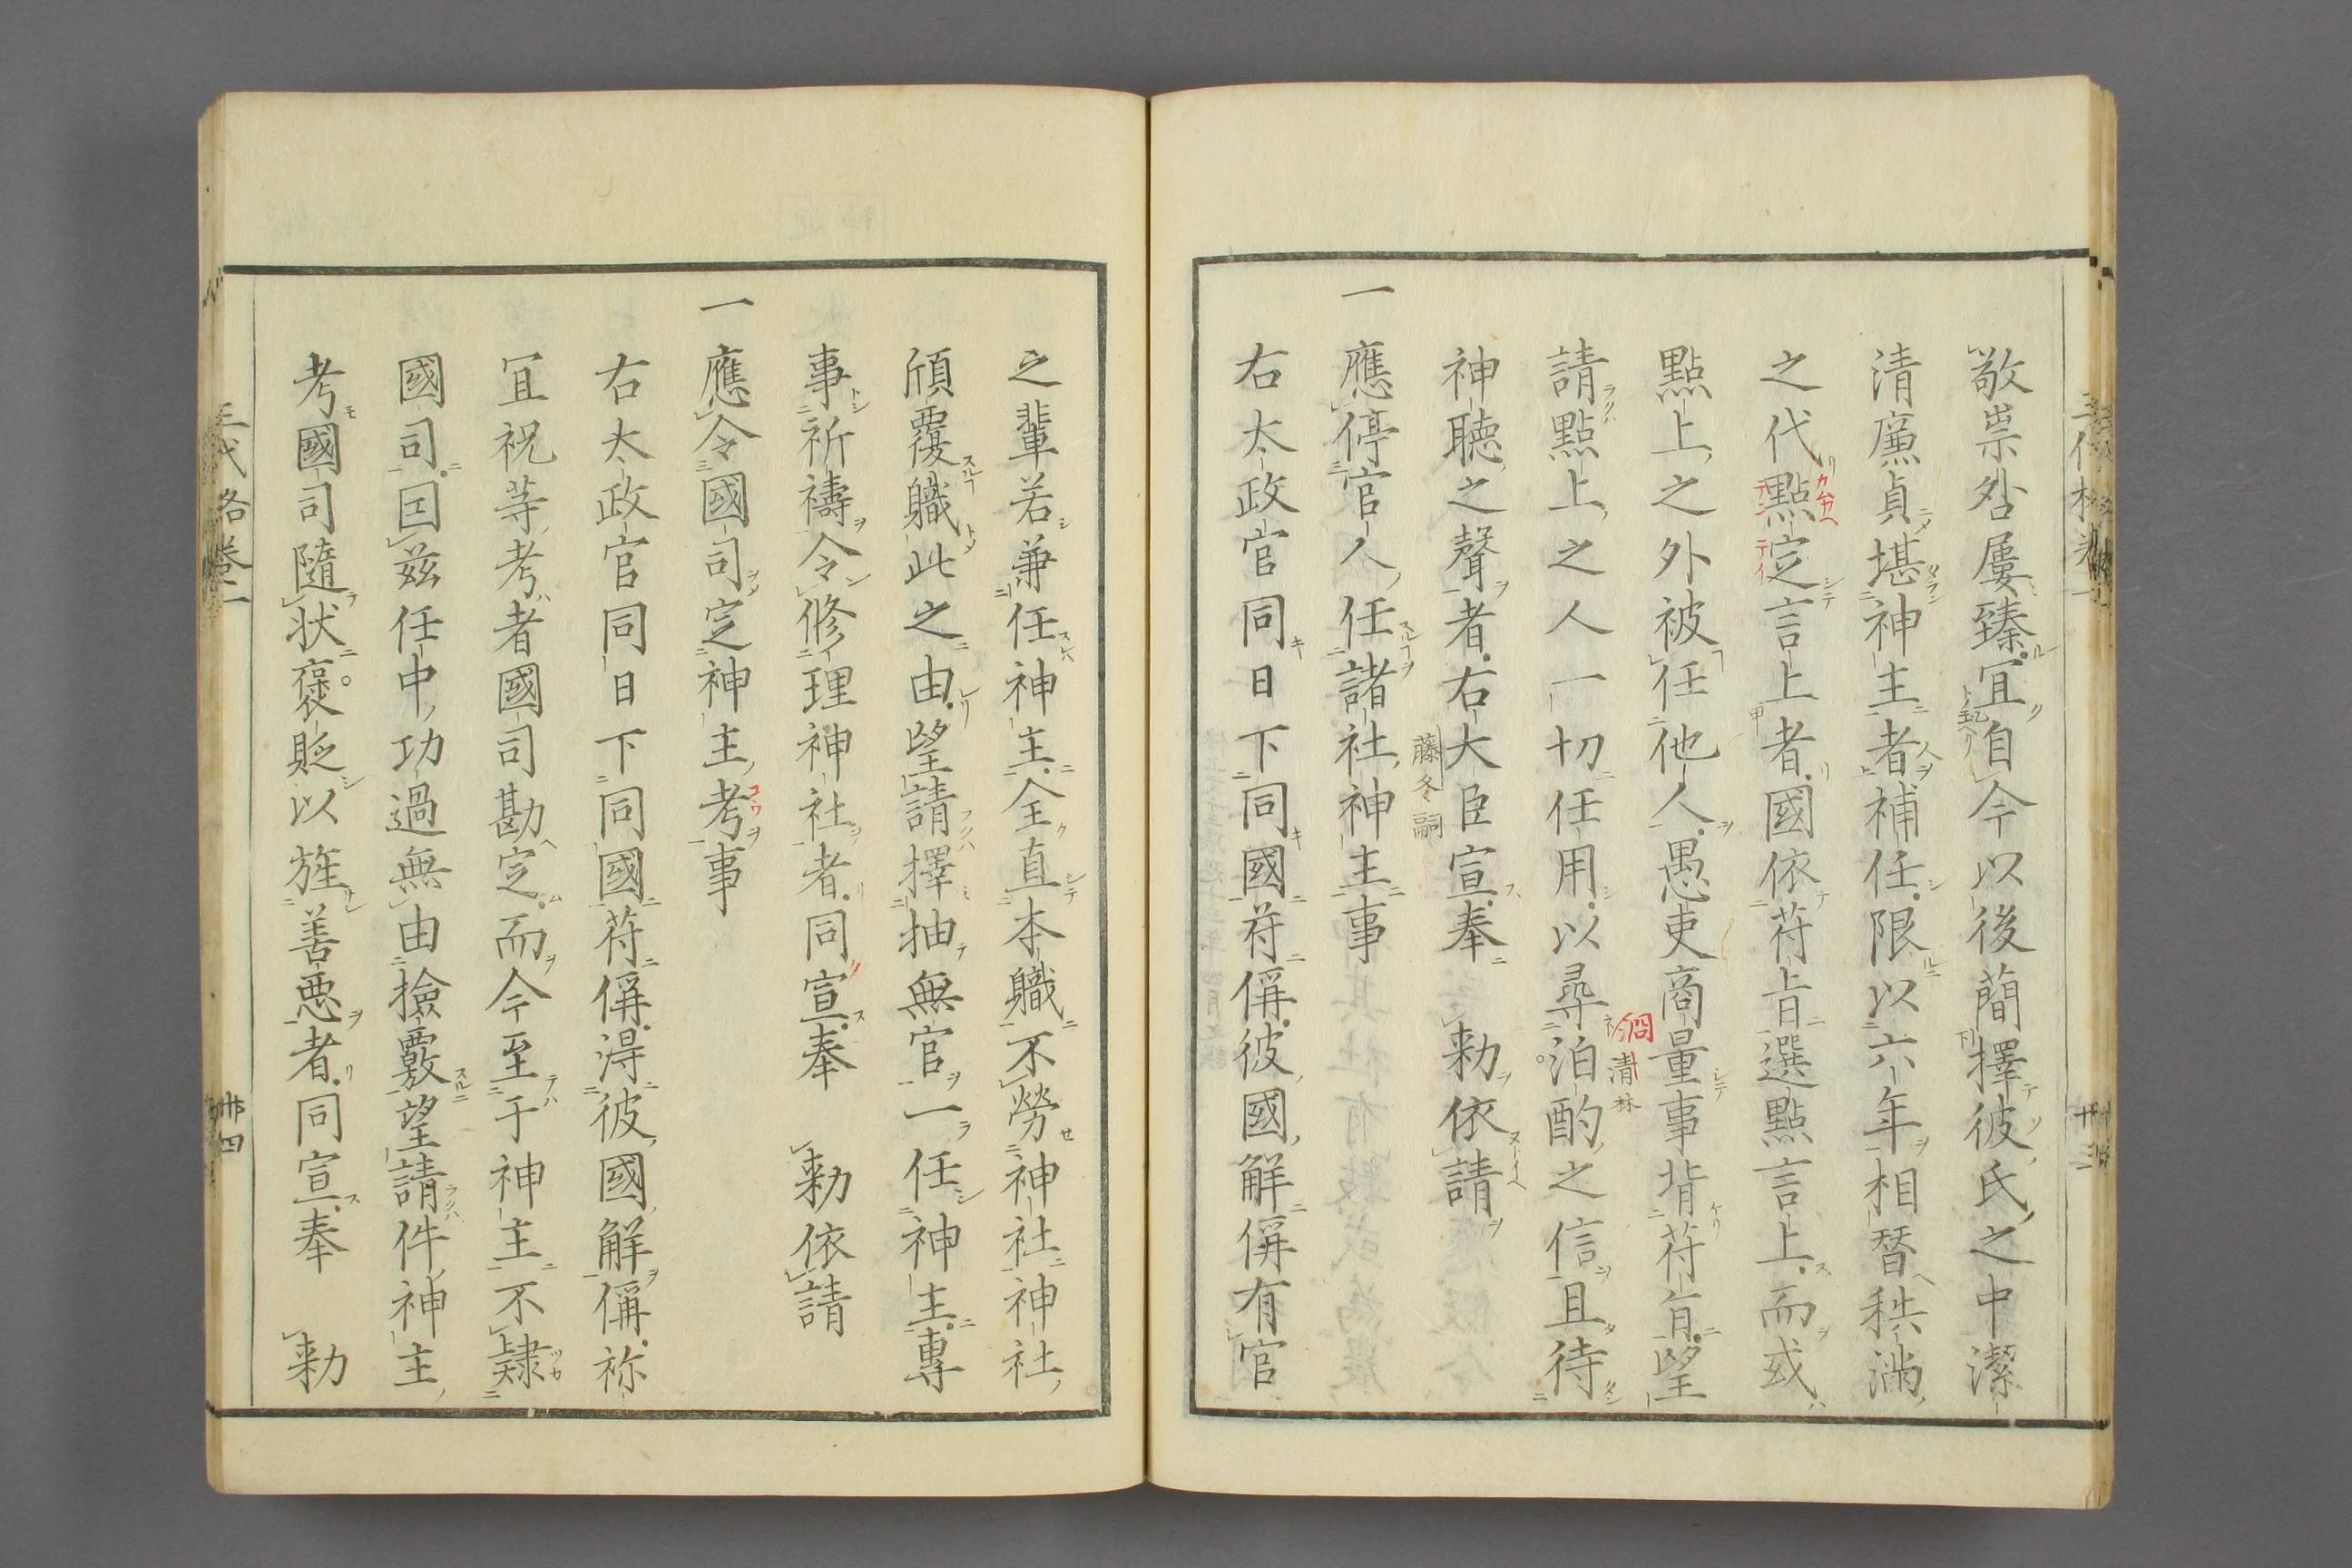 敬祟咎屢臻冝自今以後蕳擇彼氏之中潔
清廉貞堪神主者補任限以六年相替秩滿
之代點定言上者國依苻旨選點言上而或
點上之外被任他人愚吏商量事背苻旨望
請點上之人一切任用以尋泊酌之信且待
神聴之聲者右大臣宣奉　勅依請
藤冬嗣
一應停官人任諸社神主事
右太政官同日下同國苻偁彼國解偁有官
之輩若兼任神主全直本職不勞神社神社
頎覆職此之由望請擇抽無官一任神主專
事祈禱令修理神社者同宣奉　勅依請
一應令國司定神主考事
右太政官同日下同國苻偁得彼國解偁祢
冝祝等考者國司勘定而今至于神主不隷
國司因茲任中功過無由撿覈望請件神主
考國司隨状褒貶以旌善悪者同宣奉　勅
三代格卷一
卅四